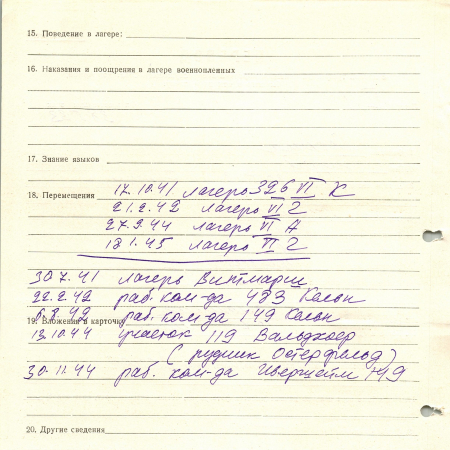 15. Поведение в лагере:
16. Наказания и поощрения в лагере военнопленных
17. Знание языков
18. Перемещения 17.10.41 лагерь 326 VI К
21.2.42 лагерь VI Г
27.9.44 лагерь VI А
18.1.45 лагерь VI Г
30.7.41 лагерь Витмариш
22.2.42 раб. ком-да 483 Кельн
6.8.42 раб. ком-да 149 Кельн
19. Вложения в карточку
13.10.44 участок 119 Вальдхоер
(рудник Остерфельд)
30.11.44 раб. ком-да Ивершейм 149
20. Другие сведения